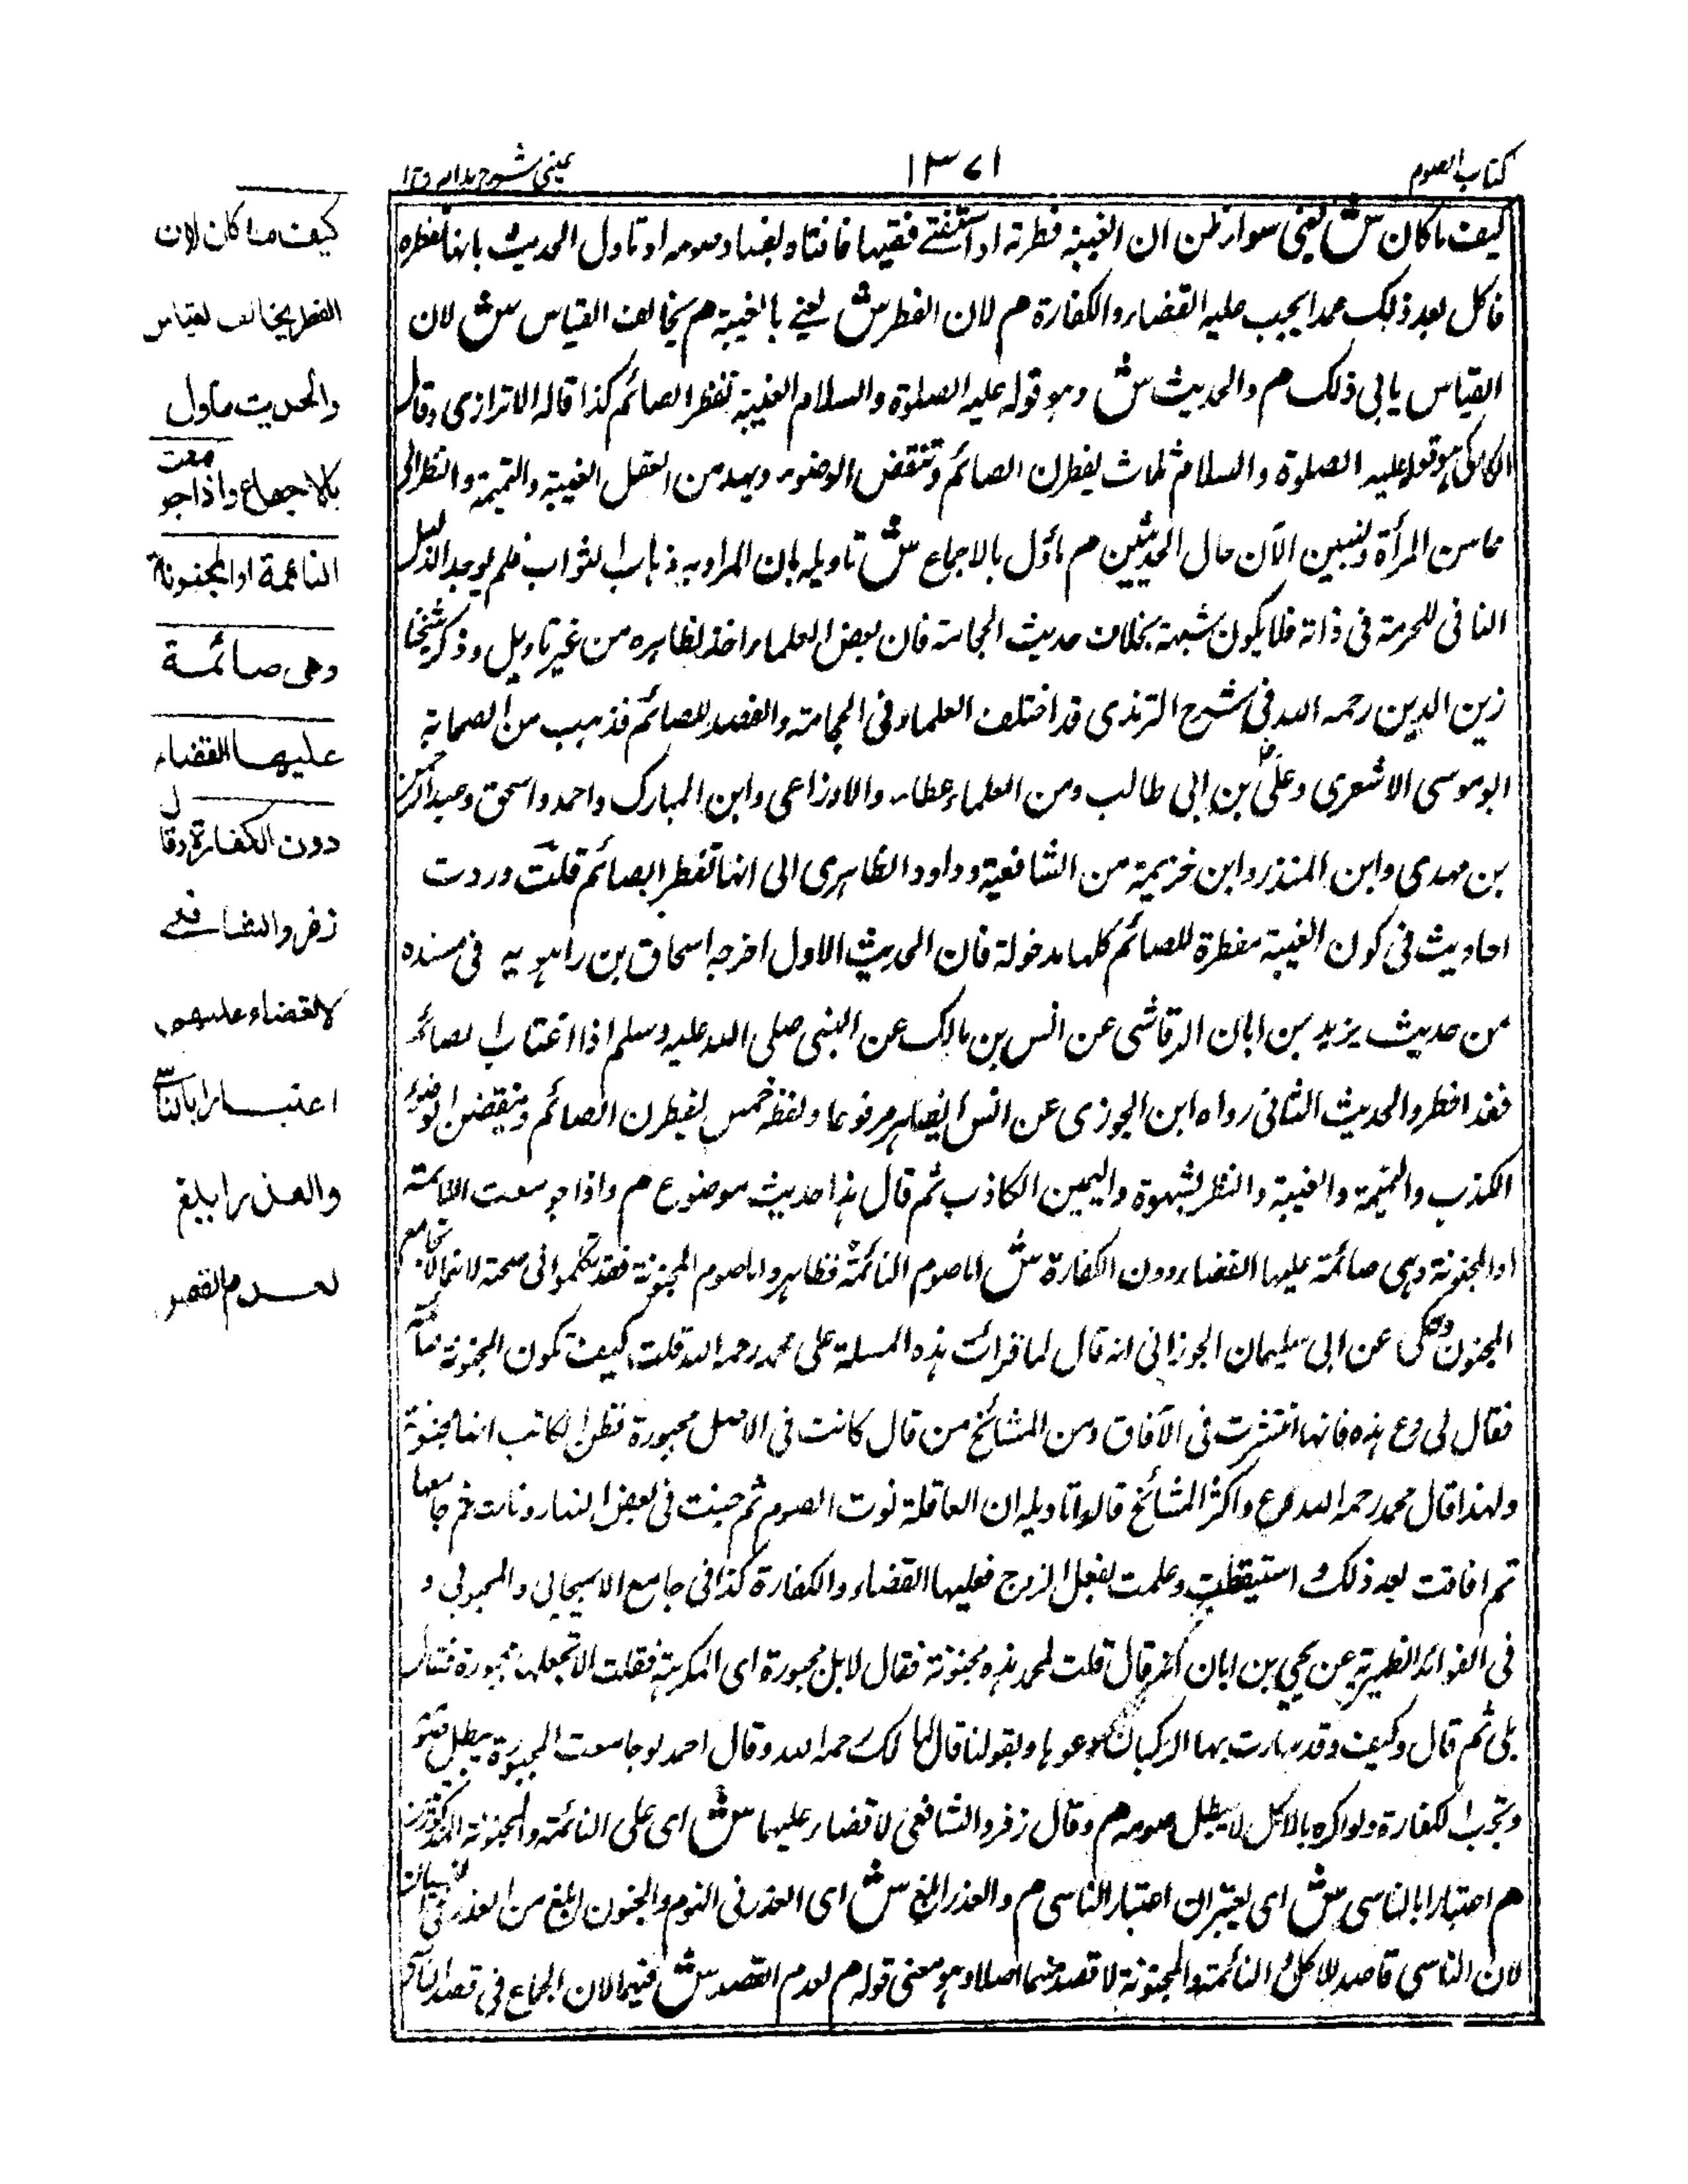 كتاب الصوم
١٣٧١
عينى شرح هدايه ج ١
كيف ما كان ش يعنى سواء ظن ان الغيبة فطرته او استفتى فقيها فافتاه بفساد صومه او تاول الحديث بانها مفطرة
فاكل بعد ذلك عمدا يجب عليه القضاء والكفارة م لان الفطر ش يعنى بالغيبة م يخالف القياس ش لان
القياس يابى ذلك م والحديث ش وهو قوله عليه الصلوة والسلام الغيبة تفطر الصائم كذا قاله الاترازى وقال
الكاكى هو قوله عليه الصلوة والسلام ثلاث يفطرن الصائم وتنقض الوضوء ويهدمن العقل الغيبة والنميمة والنظر الى
محاسن المرأة ولنبين الآن حال الحديثين م ماؤل بالاجماع ش تاويله بان المراد به ذهاب الثواب فلم يوجد الدليل
النافى للحرمة فى ذاته فلا يكون شبهة بخلاف حديث الحجامة فان بعض العلماء اخذ بظاهره من غير تاويل وذكر شيخنا
زين الدين رحمه الله فى شرح الترمذى قد اختلف العلماء فى الحجامة والفصد للصائم فذهب من الصحابة
ابو موسى الاشعرى وعلى بن ابى طالب ومن العلماء عطاء والاوزاعى وابن المبارك واحمد واسحق وعبد الرحمن
بن مهدى وابن المنذر وابن خزيمة من الشافعية وداود الظاهرى الى انها تفطر الصائم قلت وردت
احاديث فى كون الغيبة مفطرة للصائم كلها مدخولة فان الحديث الاول اخرجه اسحاق بن راهويه فى مسنده
من حديث يزيد بن ابان الرقاشى عن انس بن مالك عن النبى صلى الله عليه وسلم اذا اغتاب الصائم
فقد افطر والحديث الثانى رواه ابن الجوزى عن انس ايضا مرفوعا ولفظه خمس يفطرن الصائم وينقضن الوضوء
الكذب والنميمة والغيبة والنظر بشهوة واليمين الكاذب ثم قال هذا حديث موضوع م واذا جومعت النائمة
او المجنونة وهى صائمة عليها القضاء دون الكفارة ش اما صوم النائمة فظاهر واما صوم المجنونة فقد تكلموا فى صحته لانها لا تجامع
المجنون وحكى عن ابى سليمان الجوزانى انه قال لما قرأت هذه المسلة على محمد رحمه الله قلت كيف تكون المجنونة صائمة
فقال لى دع هذه فانها انتشرت فى الآفاق ومن المشائخ من قال كانت فى الاصل مجبورة فظن الكاتب انها مجنونة
ولهذا قال محمد رحمه الله دع واكثر المشائخ قالوا تاويله ان العاقلة نوت الصوم ثم جنت فى بعض النهار ونامت ثم جامعها
ثم افاقت بعد ذلك استيقظت وعلمت بفعل الزوج فعليها القضاء والكفارة كذا فى جامع الاسبيجابى والمحبوبى و
فى الفوائد الظهيرية عن يحيى بن ابان انه قال قلت لمحمد هذه مجنونة فقال لا بل مجبورة اى المكرهة فقلت الا تجعلها مجبورة فقال
بلى ثم قال وكيف وقد سارت بها الركبان دعوها وبقولنا قال مالك رحمه الله وقال احمد لو جامعت المجبورة يبطل صومها
وتجب الكفارة ولو اكره بالاكل لا يبطل صومه م وقال زفر والشافعى لا قضاء عليهما ش اى على النائمة والمجنونة المذكورتين
م اعتبارا بالناسى ش اى يعتبران اعتبار الناسى م والعذر ابلغ ش اى العذر فى النوم والجنون ابلغ من العذر فى النسيان
لان الناسى قاصد للاكل والنائمة والمجنونة لا قصد منهما اصلا وهو معنى قوله م لعدم القصد ش فيهما لان الجماع فى قصد
كيف ما كان لان
الفطر يخالف القياس
والحديث ماول
بالاجماع واذا جومعت
النائمة او المجنونة
وهى صائمة
عليها القضاء
دون الكفارة وقال
زفر والشافعى
لا قضاء عليهما
اعتبارا بالناسى
والعذر ابلغ
لعدم القصد